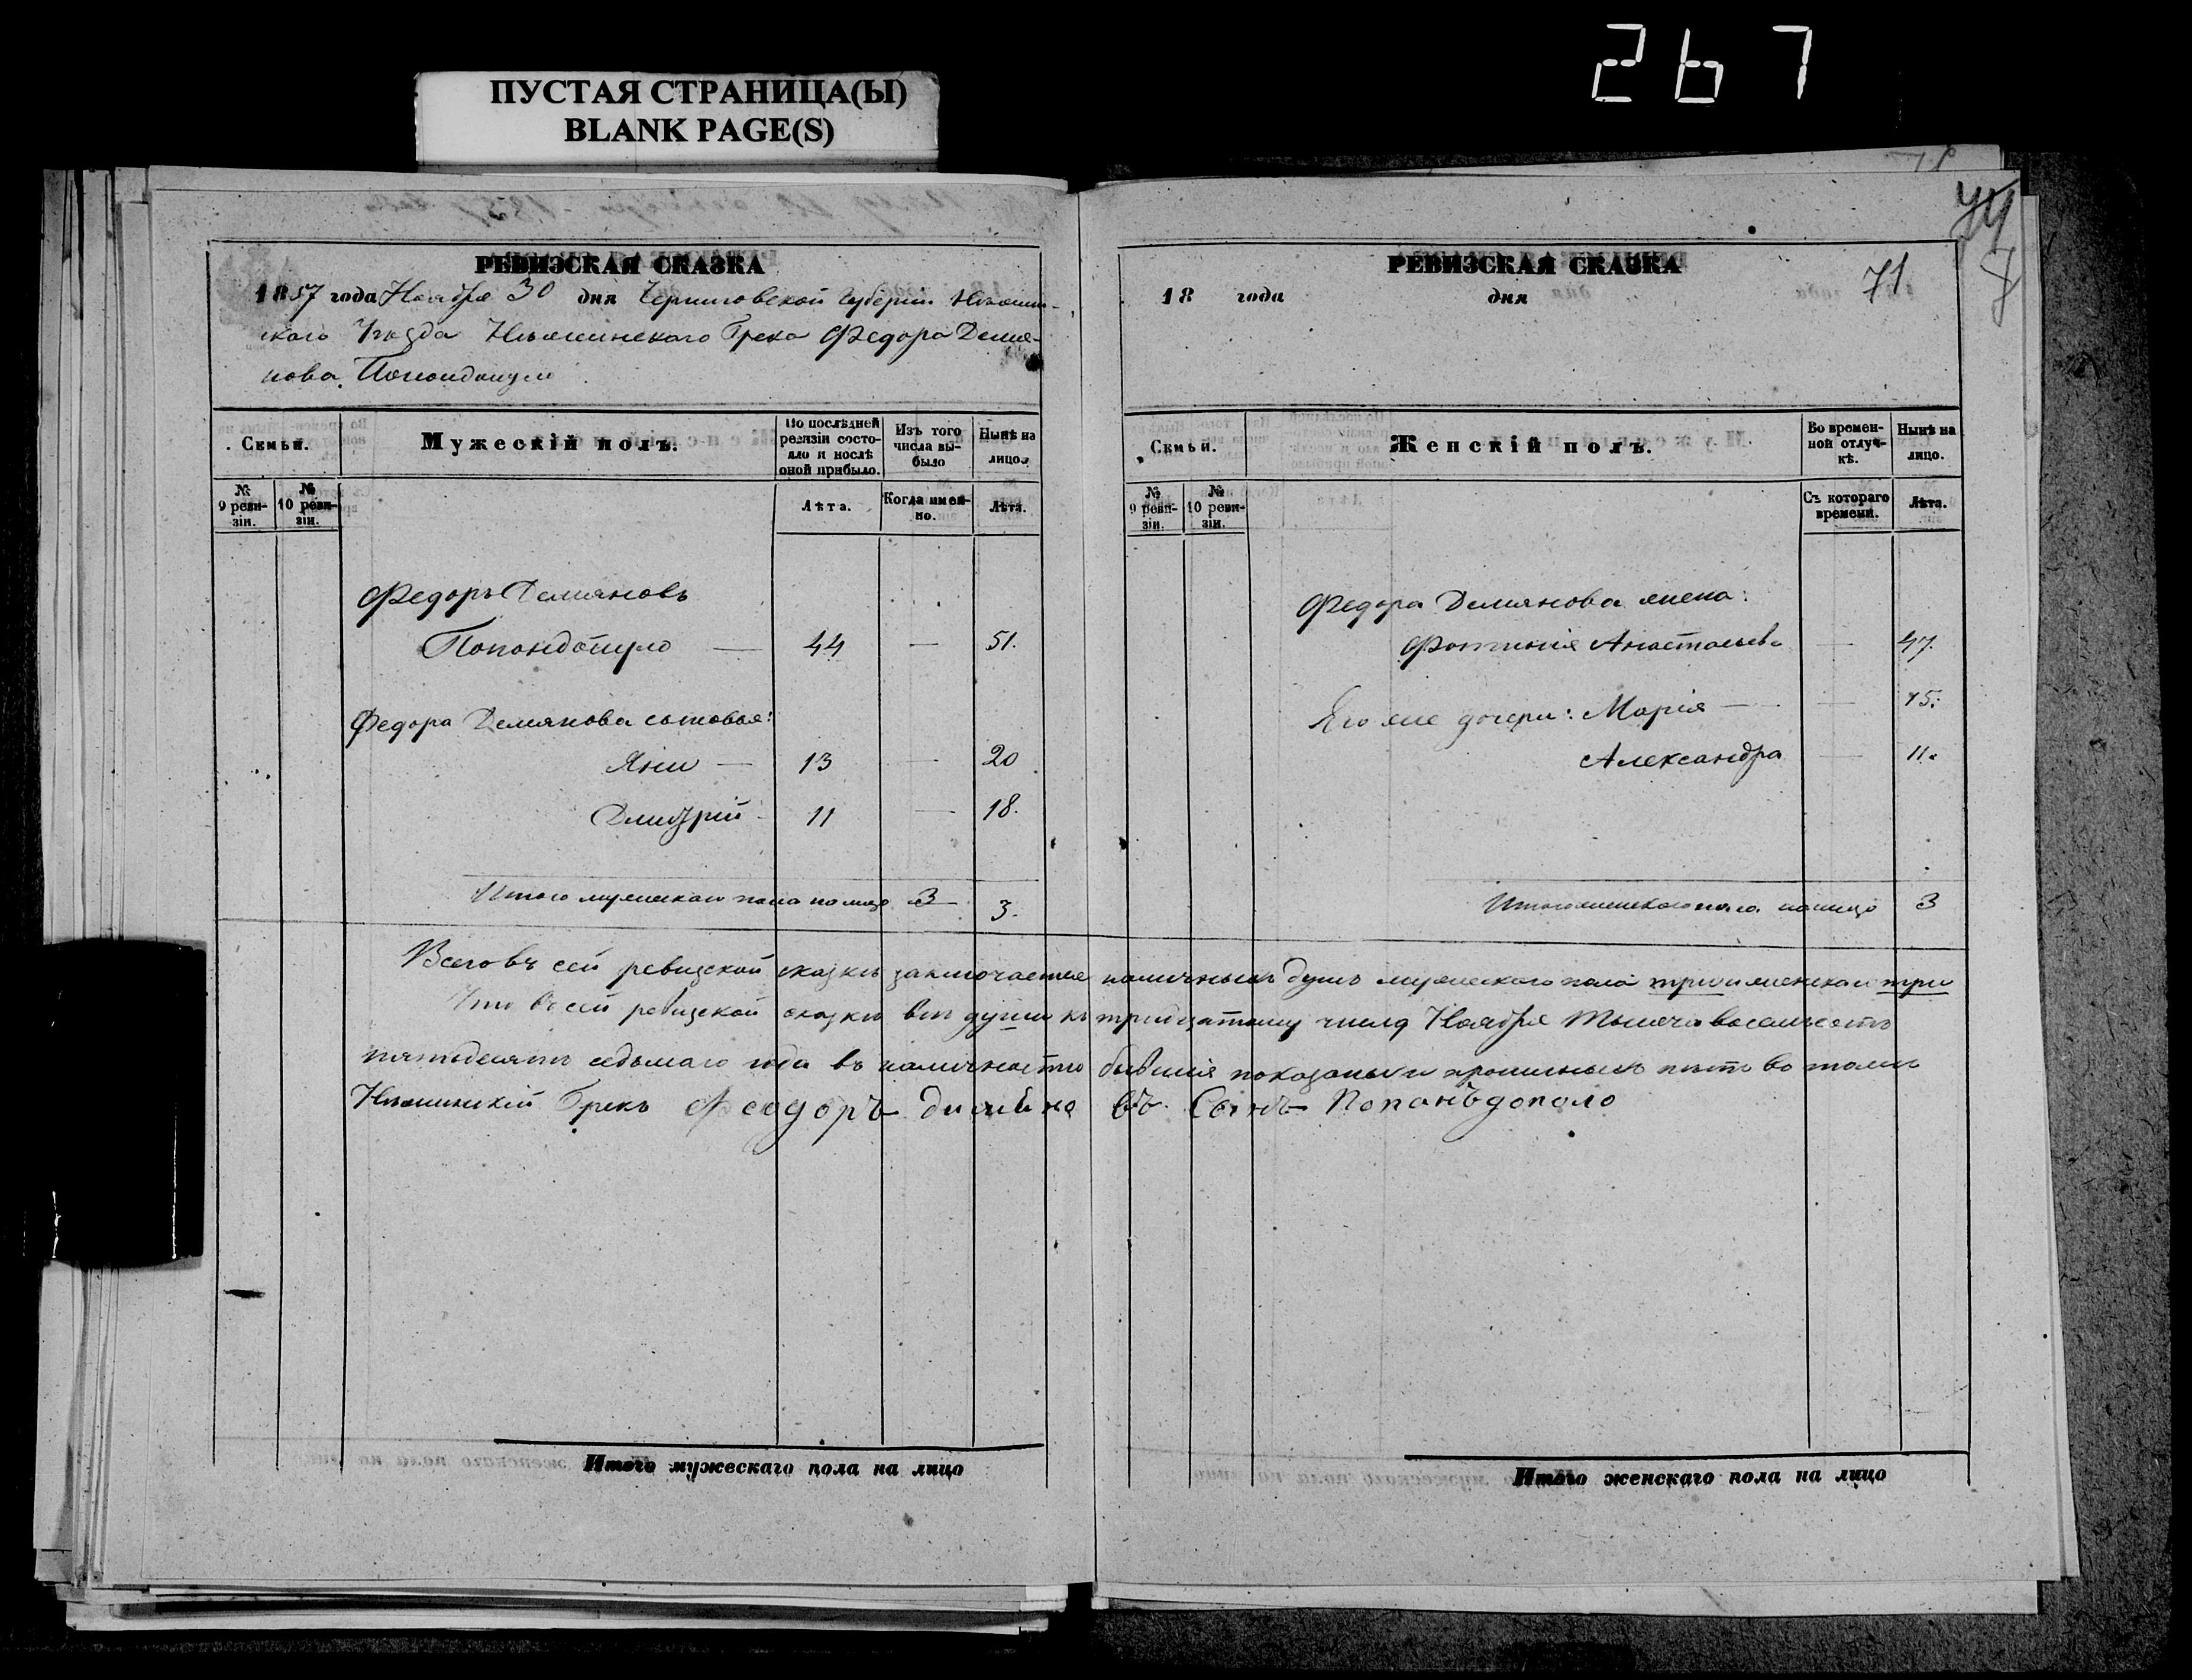 267
ПУСТАЯ СТРАНИЦА(Ы)
BLANK PAGE(S)
РЕВИЗСКАЯ СКАЗКА
1857 года Ноября 30 дня Черниговской Губерніи Нѣжин-
скаго Уѣзда Нѣжинскаго Грека Федора Демья-
нова Попондопуло
Семьи.
Мужескій полъ.
По послѣдней ревизіи состояло и послѣ оной прибыло.
Изъ того числа выбыло
Нынѣ на лицо.
№ 9 ревизіи.
№ 10 ревизіи.
Лѣта.
Когда именно.
Лѣта.
Федоръ Демяновъ
Попондопуло — 44 — 51.
Федора Демянова сыновья:
Яни — 13 — 20
Дмитрій 11 — 18.
Итого мужескаго пола на лицо 3 3.
Итого мужескаго пола на лицо
РЕВИЗСКАЯ СКАЗКА
71
18 года дня
Семьи.
Женскій полъ.
Во временной отлучкѣ.
Нынѣ на лицо.
№ 9 ревизіи.
№ 10 ревизіи.
Съ котораго времени.
Лѣта.
Федора Демянова жена:
Фотинія Анастасьева — 47.
Его же дочери: Марія — — 15.
Александра — 11.
Итого женскаго пола на лицо 3
Всего въ сей ревизской сказкѣ заключается наличныхъ душъ мужескаго пола три и женскаго три
Что въ сей ревизской сказкѣ всѣ души къ тридцатому числу Ноября тысяча восемьсотъ
пятьдесятъ седьмаго года въ наличности бывшія показаны и прописныхъ нѣтъ во томъ
Нѣжинскій Грекъ Феодоръ въ Сынъ Попанъдополо
Итого женскаго пола на лицо